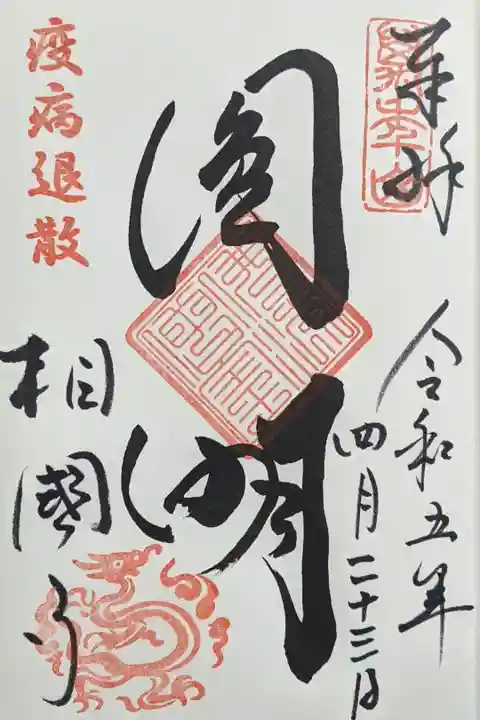 奉拝
令和五年
四月二十三日
圓明
疫病退散
相國寺